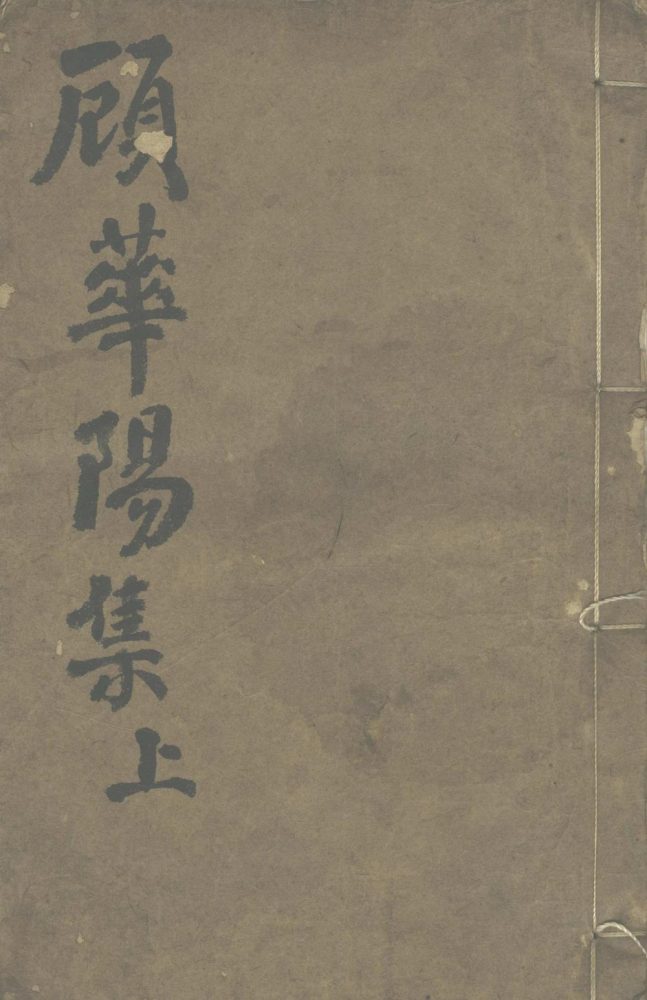 顧華陽集上